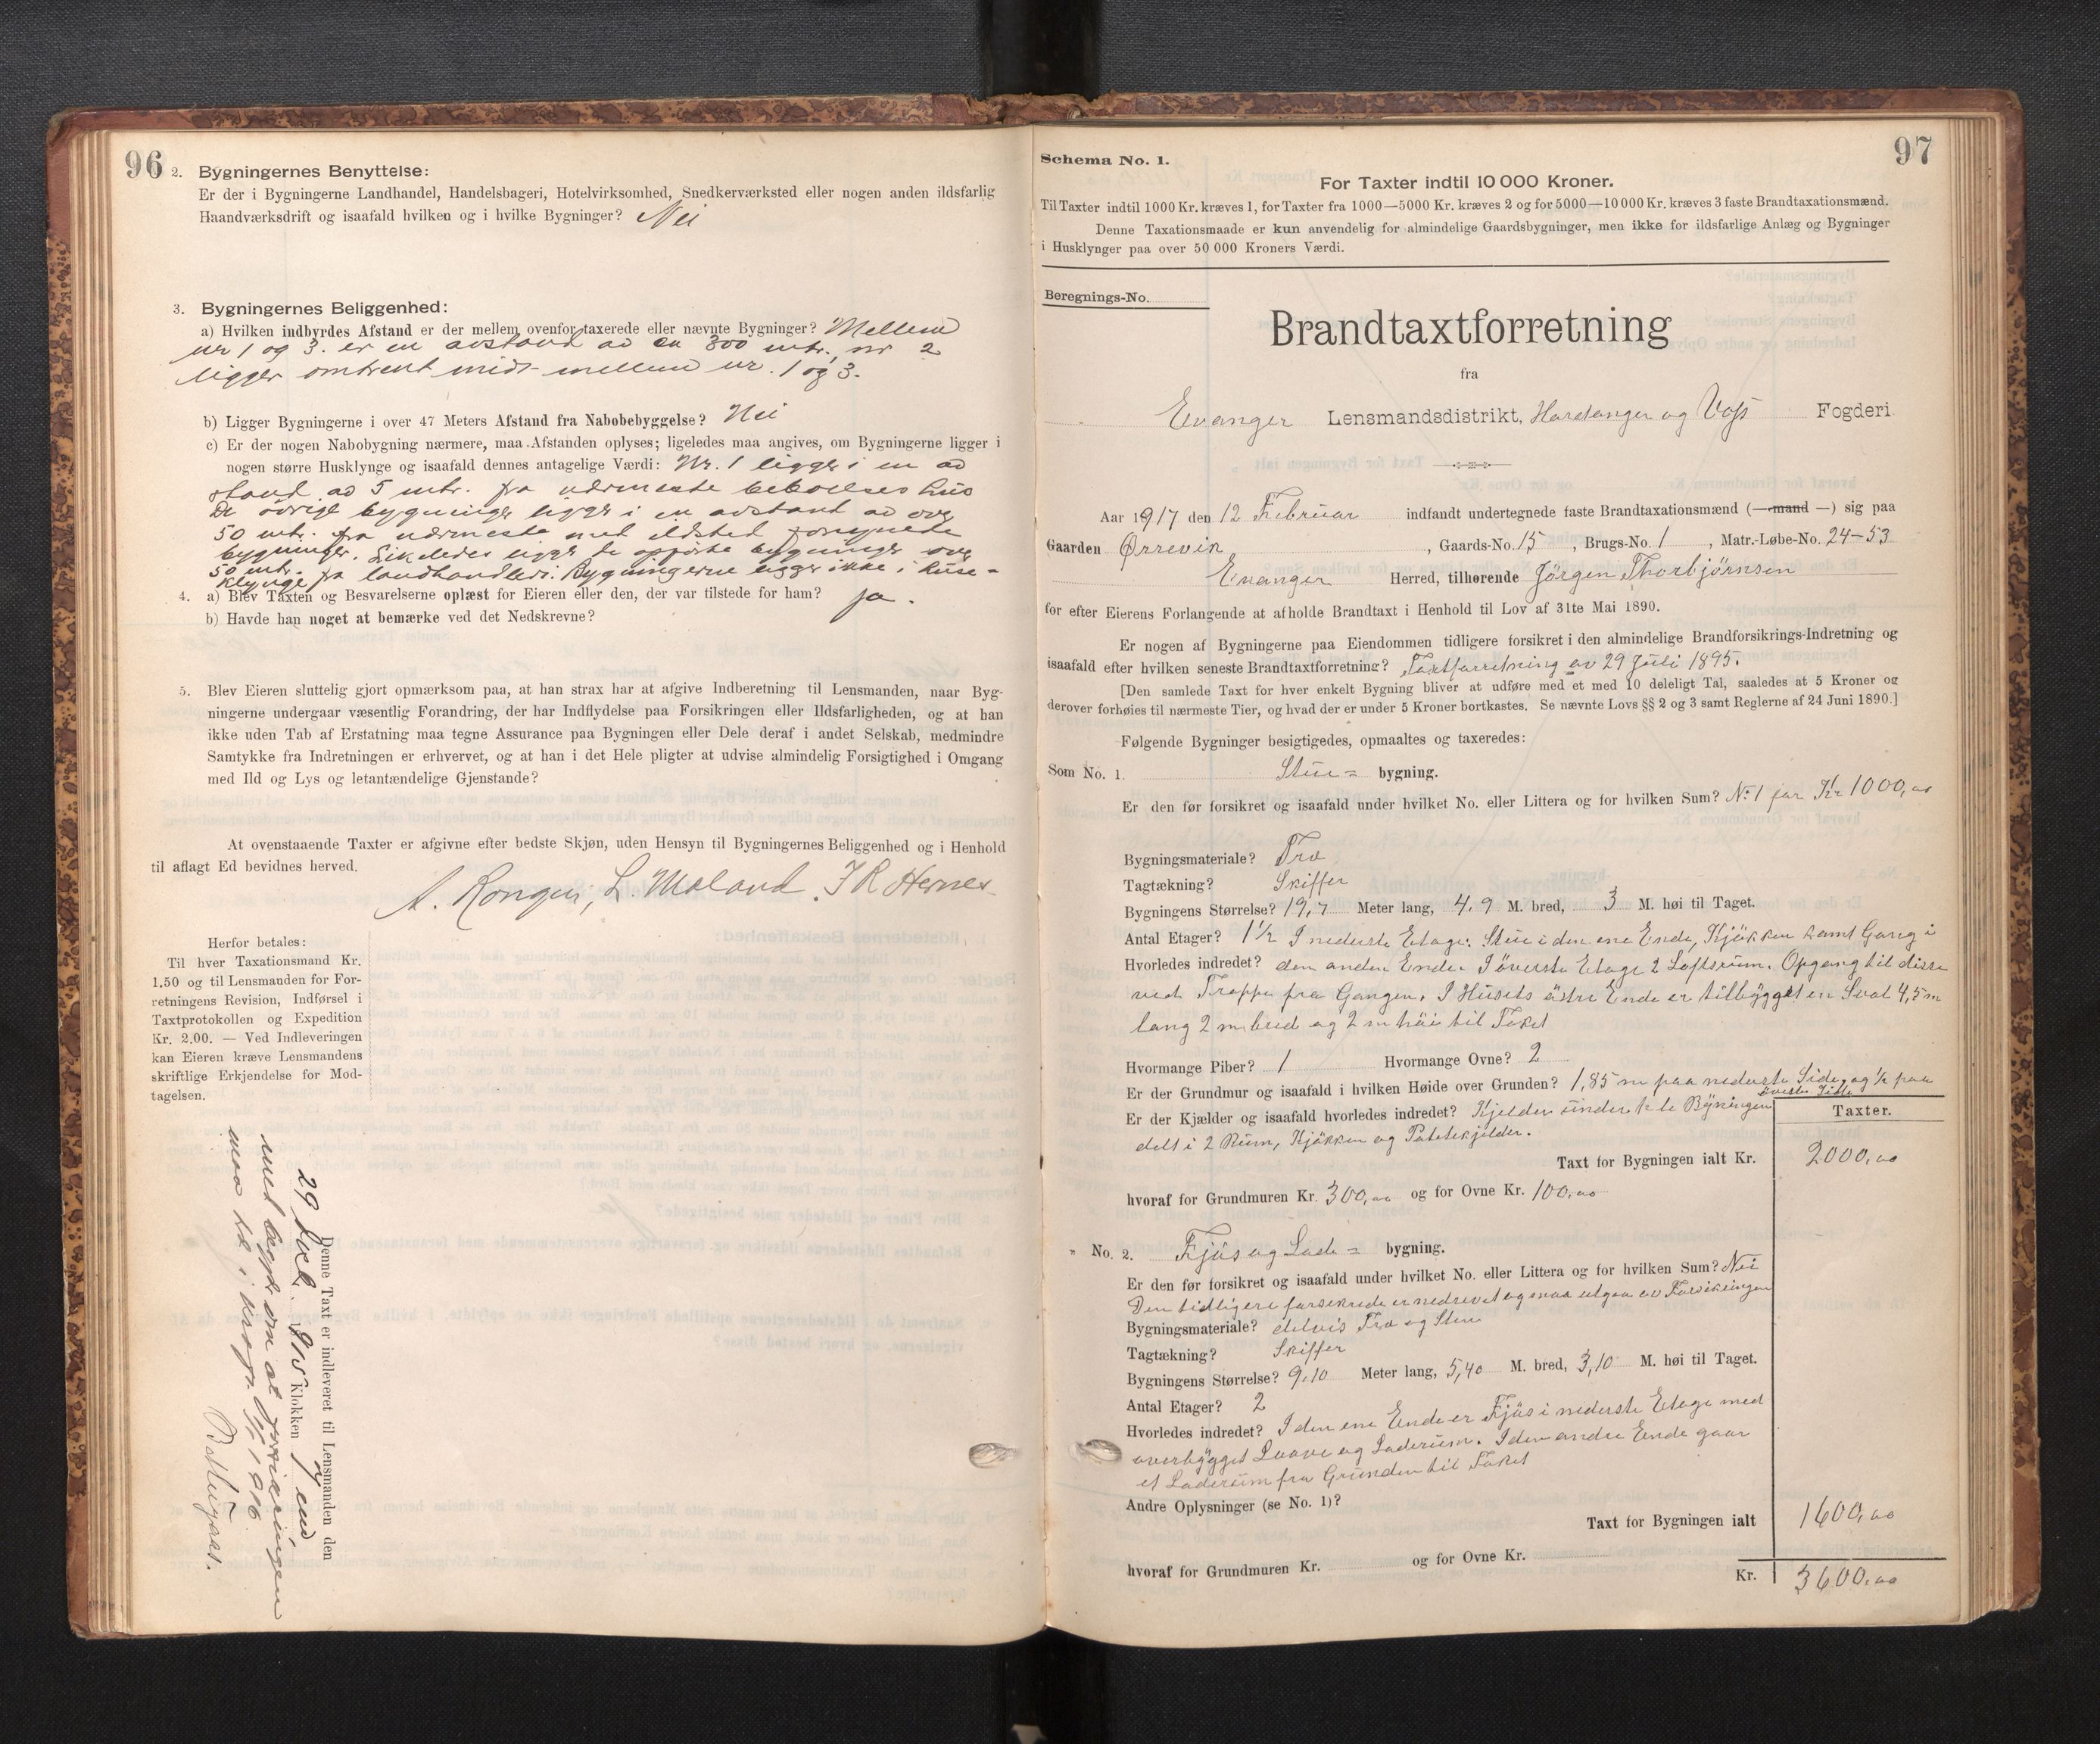 96
2. Bygningernes Benyttelse:
Er der i Bygningerne Landhandel, Handelsbageri, Hotelvirksomhed, Snedkerværksted eller nogen anden ildsfarlig
Haandværksdrift og isaafald hvilken og i hvilke Bygninger? Nei
3. Bygningernes Beliggenhed:
a) Hvilken indbyrdes Afstand er der mellem ovenfor taxerede eller nævnte Bygninger? Mellem
nr 1 og 3. er en avstand av ca 300 mtr., nr 2
ligger omtrent midt mellem nr. 1 og 3.
b) Ligger Bygningerne i over 47 Meters Afstand fra Nabobebyggelse? Nei
c) Er der nogen Nabobygning nærmere, maa Afstanden oplyses; ligeledes maa angives, om Bygningerne ligger i
nogen større Husklynge og isaafald dennes antagelige Værdi: Nr. 1 ligger i en av
stand av 5 mtr. fra nærmeste beboelseshus
De øvrige bygninger ligger i en avstand av over
50 mtr. fra nærmeste med ildsted forsynede
bygninger. Likeledes ligger de opførte bygninger over
50 mtr. fra landhandleri. Bygningerne ligger ikke i huse-
klynge
4. a) Blev Taxten og Besvarelserne oplæst for Eieren eller den, der var tilstede for ham? ja.
b) Havde han noget at bemærke ved det Nedskrevne?
5. Blev Eieren sluttelig gjort opmærksom paa, at han strax har at afgive Indberetning til Lensmanden, naar Byg-
ningerne undergaar væsentlig Forandring, der har Indflydelse paa Forsikringen eller Ildsfarligheden, og at han
ikke uden Tab af Erstatning maa tegne Assurance paa Bygningen eller Dele deraf i andet Selskab, medmindre
Samtykke fra Indretningen er erhvervet, og at han i det Hele pligter at udvise almindelig Forsigtighed i Omgang
med Ild og Lys og letantændelige Gjenstande?
At ovenstaaende Taxter er afgivne efter bedste Skjøn, uden Hensyn til Bygningernes Beliggenhed og i Henhold
til aflagt Ed bevidnes herved.
L. Moland. I R Hernes
Herfor betales:
Til hver Taxationsmand Kr.
1.50 og til Lensmanden for For-
retningens Revision, Indførsel i
Taxtprotokollen og Expedition
Kr. 2.00. — Ved Indleveringen
kan Eieren kræve Lensmandens
skriftlige Erkjendelse for Mod-
tagelsen.
Denne Taxt er indleveret til Lensmanden den
29 1915 Klokken 7 em
med begjær om at forsikringen
maa bli i 1916.
97
Schema No. 1.
For Taxter indtil 10 000 Kroner.
Til Taxter indtil 1000 Kr. kræves 1, for Taxter fra 1000—5000 Kr. kræves 2 og for 5000—10 000 Kr. kræves 3 faste Brandtaxationsmænd.
Denne Taxationsmaade er kun anvendelig for almindelige Gaardsbygninger, men ikke for ildsfarlige Anlæg og Bygninger
i Husklynger paa over 50 000 Kroners Værdi.
Beregnings-No.
Brandtaxtforretning
fra
Evanger Lensmandsdistrikt, Hardanger og Voss Fogderi
Aar 1917 den 12 Februar indfandt undertegnede faste Brandtaxationsmænd (— mand —) sig paa
Gaarden Ørrevik, Gaards-No. 15, Brugs-No. 1, Matr.-Løbe-No. 24-53
Evanger Herred, tilhørende Jörgen Thorbjørnsen
for efter Eierens Forlangende at afholde Brandtaxt i Henhold til Lov af 31te Mai 1890.
Er nogen af Bygningerne paa Eiendommen tidligere forsikret i den almindelige Brandforsikrings-Indretning og
isaafald efter hvilken seneste Brandtaxtforretning? Taxtforretning av 29 Juli 1895.
[Den samlede Taxt for hver enkelt Bygning bliver at udføre med et med 10 deleligt Tal, saaledes at 5 Kroner og
derover forhøies til nærmeste Tier, og hvad der er under 5 Kroner bortkastes. Se nævnte Lovs §§ 2 og 3 samt Reglerne af 24 Juni 1890.]
Følgende Bygninger besigtigedes, opmaaltes og taxeredes:
Som No. 1. Stue= bygning.
Er den før forsikret og isaafald under hvilket No. eller Littera og for hvilken Sum? No 1 for Kr 1000,00
Bygningsmateriale? Træ
Tagtækning? Skiffer
Bygningens Størrelse? 19,7 Meter lang, 4,9 M. bred, 3 M. høi til Taget.
Antal Etager? 1 1/2 I nederste Etage: Stue i den ene Ende, Kjøkken samt Gang i
Hvorledes indredet? den anden Ende. I øverste Etage 2 Loftsrum. Opgang til disse
ved Trappe fra Gangen. I Husets østre Ende er tilbygget en Sval 4,5 m
lang 2 m bred og 2 m høi til Taket
Hvormange Piber? 1 Hvormange Ovne? 2
Er der Grundmur og isaafald i hvilken Høide over Grunden? 1,85 m paa nederste Side, og 1/2 paa
øverste Side
Er der Kjælder og isaafald hvorledes indredet? Kjelder under hele Bygningen
delt i 2 Rum, Kjøkken og Potetkjelder.
Taxter.
Taxt for Bygningen ialt Kr. 2000,00
hvoraf for Grundmuren Kr. 300,00 og for Ovne Kr. 100,00
" No. 2. Fjøs og Lade= bygning.
Er den før forsikret og isaafald under hvilket No. eller Littera og for hvilken Sum? Nei
Den tidligere forsikrede er nedrevet og maa utgaa av Forsikringen
Bygningsmateriale? delvis Træ og Sten
Tagtækning? Skiffer
Bygningens Størrelse? 9,10 Meter lang, 5,40 M. bred, 3,10 M. høi til Taget.
Antal Etager? 2
Hvorledes indredet? I den ene Ende er Fjøs i nederste Etage med
overbygget Laave og Laderum. I den andre Ende gaar
et Laderum fra Grunden til Taket
Andre Oplysninger (se No. 1)?
Taxt for Bygningen ialt 1600,00
hvoraf for Grundmuren Kr. og for Ovne Kr.
Kr. 3600,00